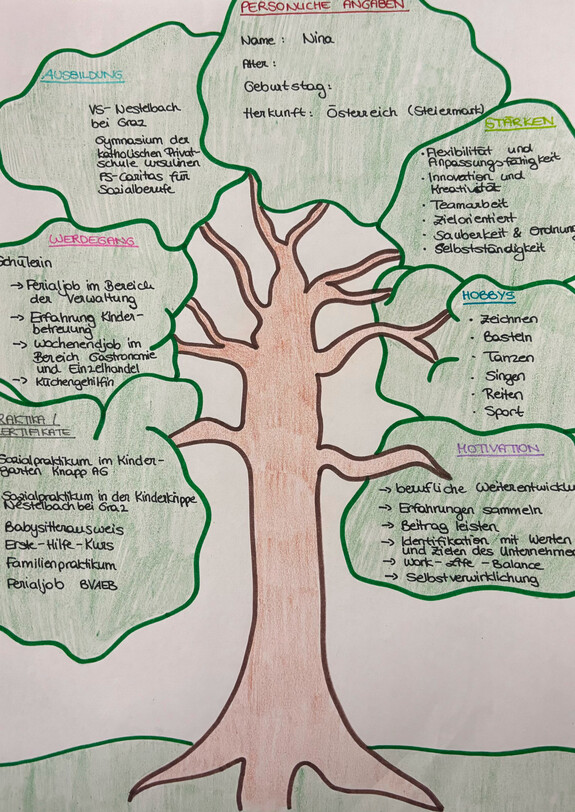 PERSÖNLICHE ANGABEN
Name: Nina
Alter:
Geburtstag:
Herkunft: Österreich (Steiermark)
AUSBILDUNG
VS-Nestelbach
bei Graz
Gymnasium der
katholischen Privat-
schule Ursulinen
FS-Caritas für
Sozialberufe
STÄRKEN
· Flexibilität und
Anpassungsfähigkeit
· Innovation und
Kreativität
· Teamarbeit
· Zielorientiert
· Sauberkeit & Ordnung
· Selbstständigkeit
WERDEGANG
Schülerin
→ Ferialjob im Bereich
der Verwaltung
→ Erfahrung Kinder-
betreuung
→ Wochenendjob im
Bereich Gastronomie
und Einzelhandel
→ Küchengehilfin
HOBBYS
· Zeichnen
· Basteln
· Tanzen
· Singen
· Reiten
· Sport
RAKTIKA /
ERTIFIKATE
Sozialpraktikum im Kinder-
garten Knapp AG
Sozialpraktikum in der Kinderkrippe
Nestelbach bei Graz
Babysitterausweis
Erste-Hilfe-Kurs
Familienpraktikum
Ferialjob BVAEB
MOTIVATION
→ berufliche Weiterentwicklu
→ Erfahrungen sammeln
→ Beitrag leisten
→ Identifikation mit Werten
und Zielen des Unternehme
→ Work-Life-Balance
→ Selbstverwirklichung